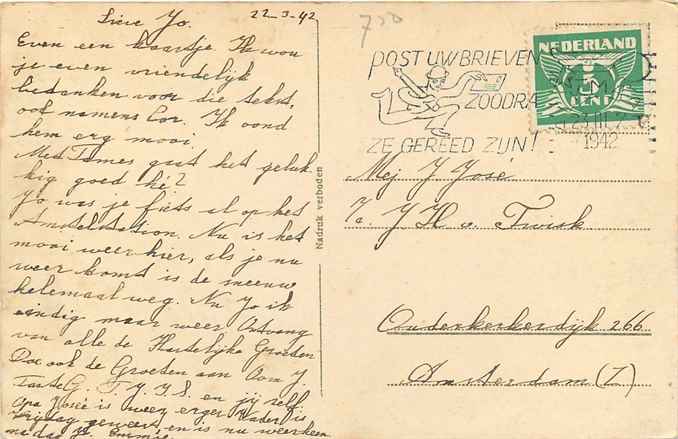 22-3-42
Lieve Jo.
Even een kaartje Ik wou
je even vriendelijk
bedanken voor die tekst,
ook namens Cor. Ik vond
hem erg mooi.
Met Tames gaat het geluk
kig goed hé?
Jo was je fiets al op het
Amstelstation. Nu is het
mooi weer hier, als je nu
weer komt is de sneeuw
helemaal weg. Nu Jo ik
eindig maar weer Ontvang
van alle de Hartelijke Groeten
Doe ook de Groeten aan Oom J.
Tante G. T. J. J. S. en jij zelf.
Opa José is weer erger Vader is
Vrijdag geweest en is nu weer heen
Nadruk verboden
700
POST UW BRIEVEN
ZOODRA
ZE GEREED ZIJN!
NEDERLAND
CENT
1942
Mej J José
J H v. Twisk
Ouderkerkerdijk 266
Amsterdam (Z)